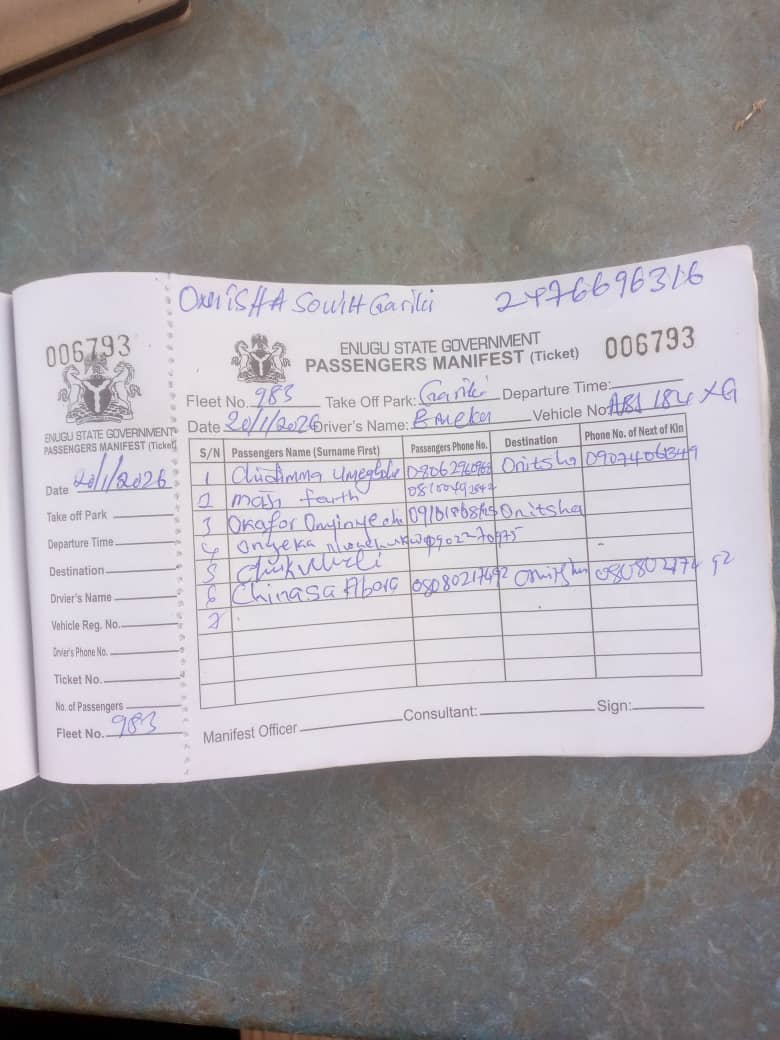 ONISHA SOUTH Gariki 2476696316
006793
ENUGU STATE GOVERNMENT
PASSENGERS MANIFEST (Ticket)
Date 20/1/2026
Take off Park
Departure Time
Destination
Drvier's Name
Vehicle Reg. No.
Drver's Phone No.
Ticket No.
No. of Passengers
Fleet No. 983
ENUGU STATE GOVERNMENT
PASSENGERS MANIFEST (Ticket)
006793
Fleet No. 983 Take Off Park: Gariki Departure Time:
Date 20/1/2026 Driver's Name: Emeka Vehicle No: ABJ 184 XG
S/N Passengers Name (Surname First) Passengers Phone No. Destination Phone No. of Next of Kin
1 Chidimma Onitsha 09074061349
2
3 Okafor Onyinyechi Onitsha
4 Onyeka
5
6 Chinasa 08080217492 Onitsha 080802174 92
7
Manifest Officer Consultant: Sign: